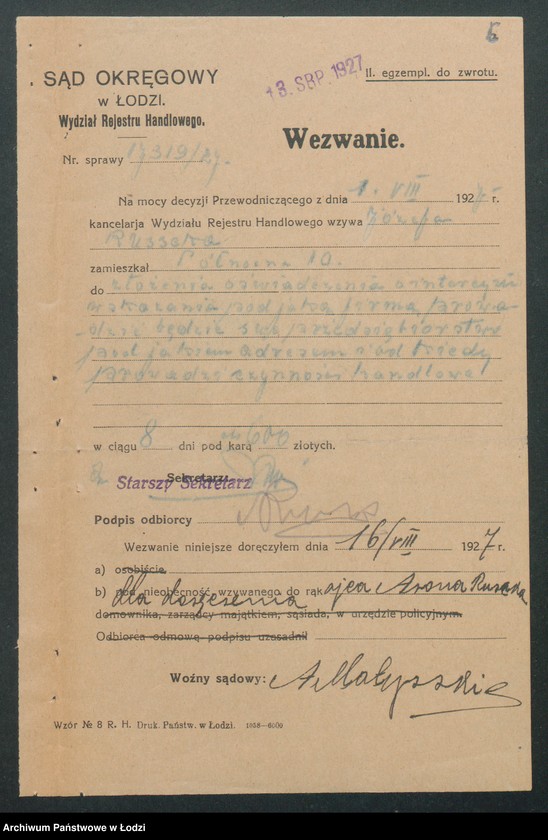 6
SĄD OKRĘGOWY
w ŁODZI.
Wydział Rejestru Handlowego.
13. SRP. 1927
II. egzempl. do zwrotu.
Wezwanie.
Nr. sprawy 17319/27.
Na mocy decyzji Przewodniczącego z dnia 1. VIII 1927 r.
kancelarja Wydziału Rejestru Handlowego wzywa Józefa
Russaka
zamieszkał Północna 10.
do złożenia oświadczenia o intercyzie
wskazania pod jaką firmą prowa-
dzić będzie swe przedsiębiorstwo
pod jakiem adresem i od kiedy
prowadzi czynności handlowe
w ciągu 8 dni pod karą do 600 złotych.
Sekretarz:
Starszy Sekretarz
Podpis odbiorcy
Wezwanie niniejsze doręczyłem dnia 16/VIII 1927 r.
a) osobiście
b) pod nieobecność wzywanego do rąk ojca Arona Rusaka
dla doręczenia
domownika, zarządcy majątkiem, sąsiada, w urzędzie policyjnym.
Odbiorca odmowę podpisu uzasadnił
Woźny sądowy: A Małyszski
Wzór № 8 R. H. Druk. Państw. w Łodzi. 1058—6000
Archiwum Państwowe w Łodzi